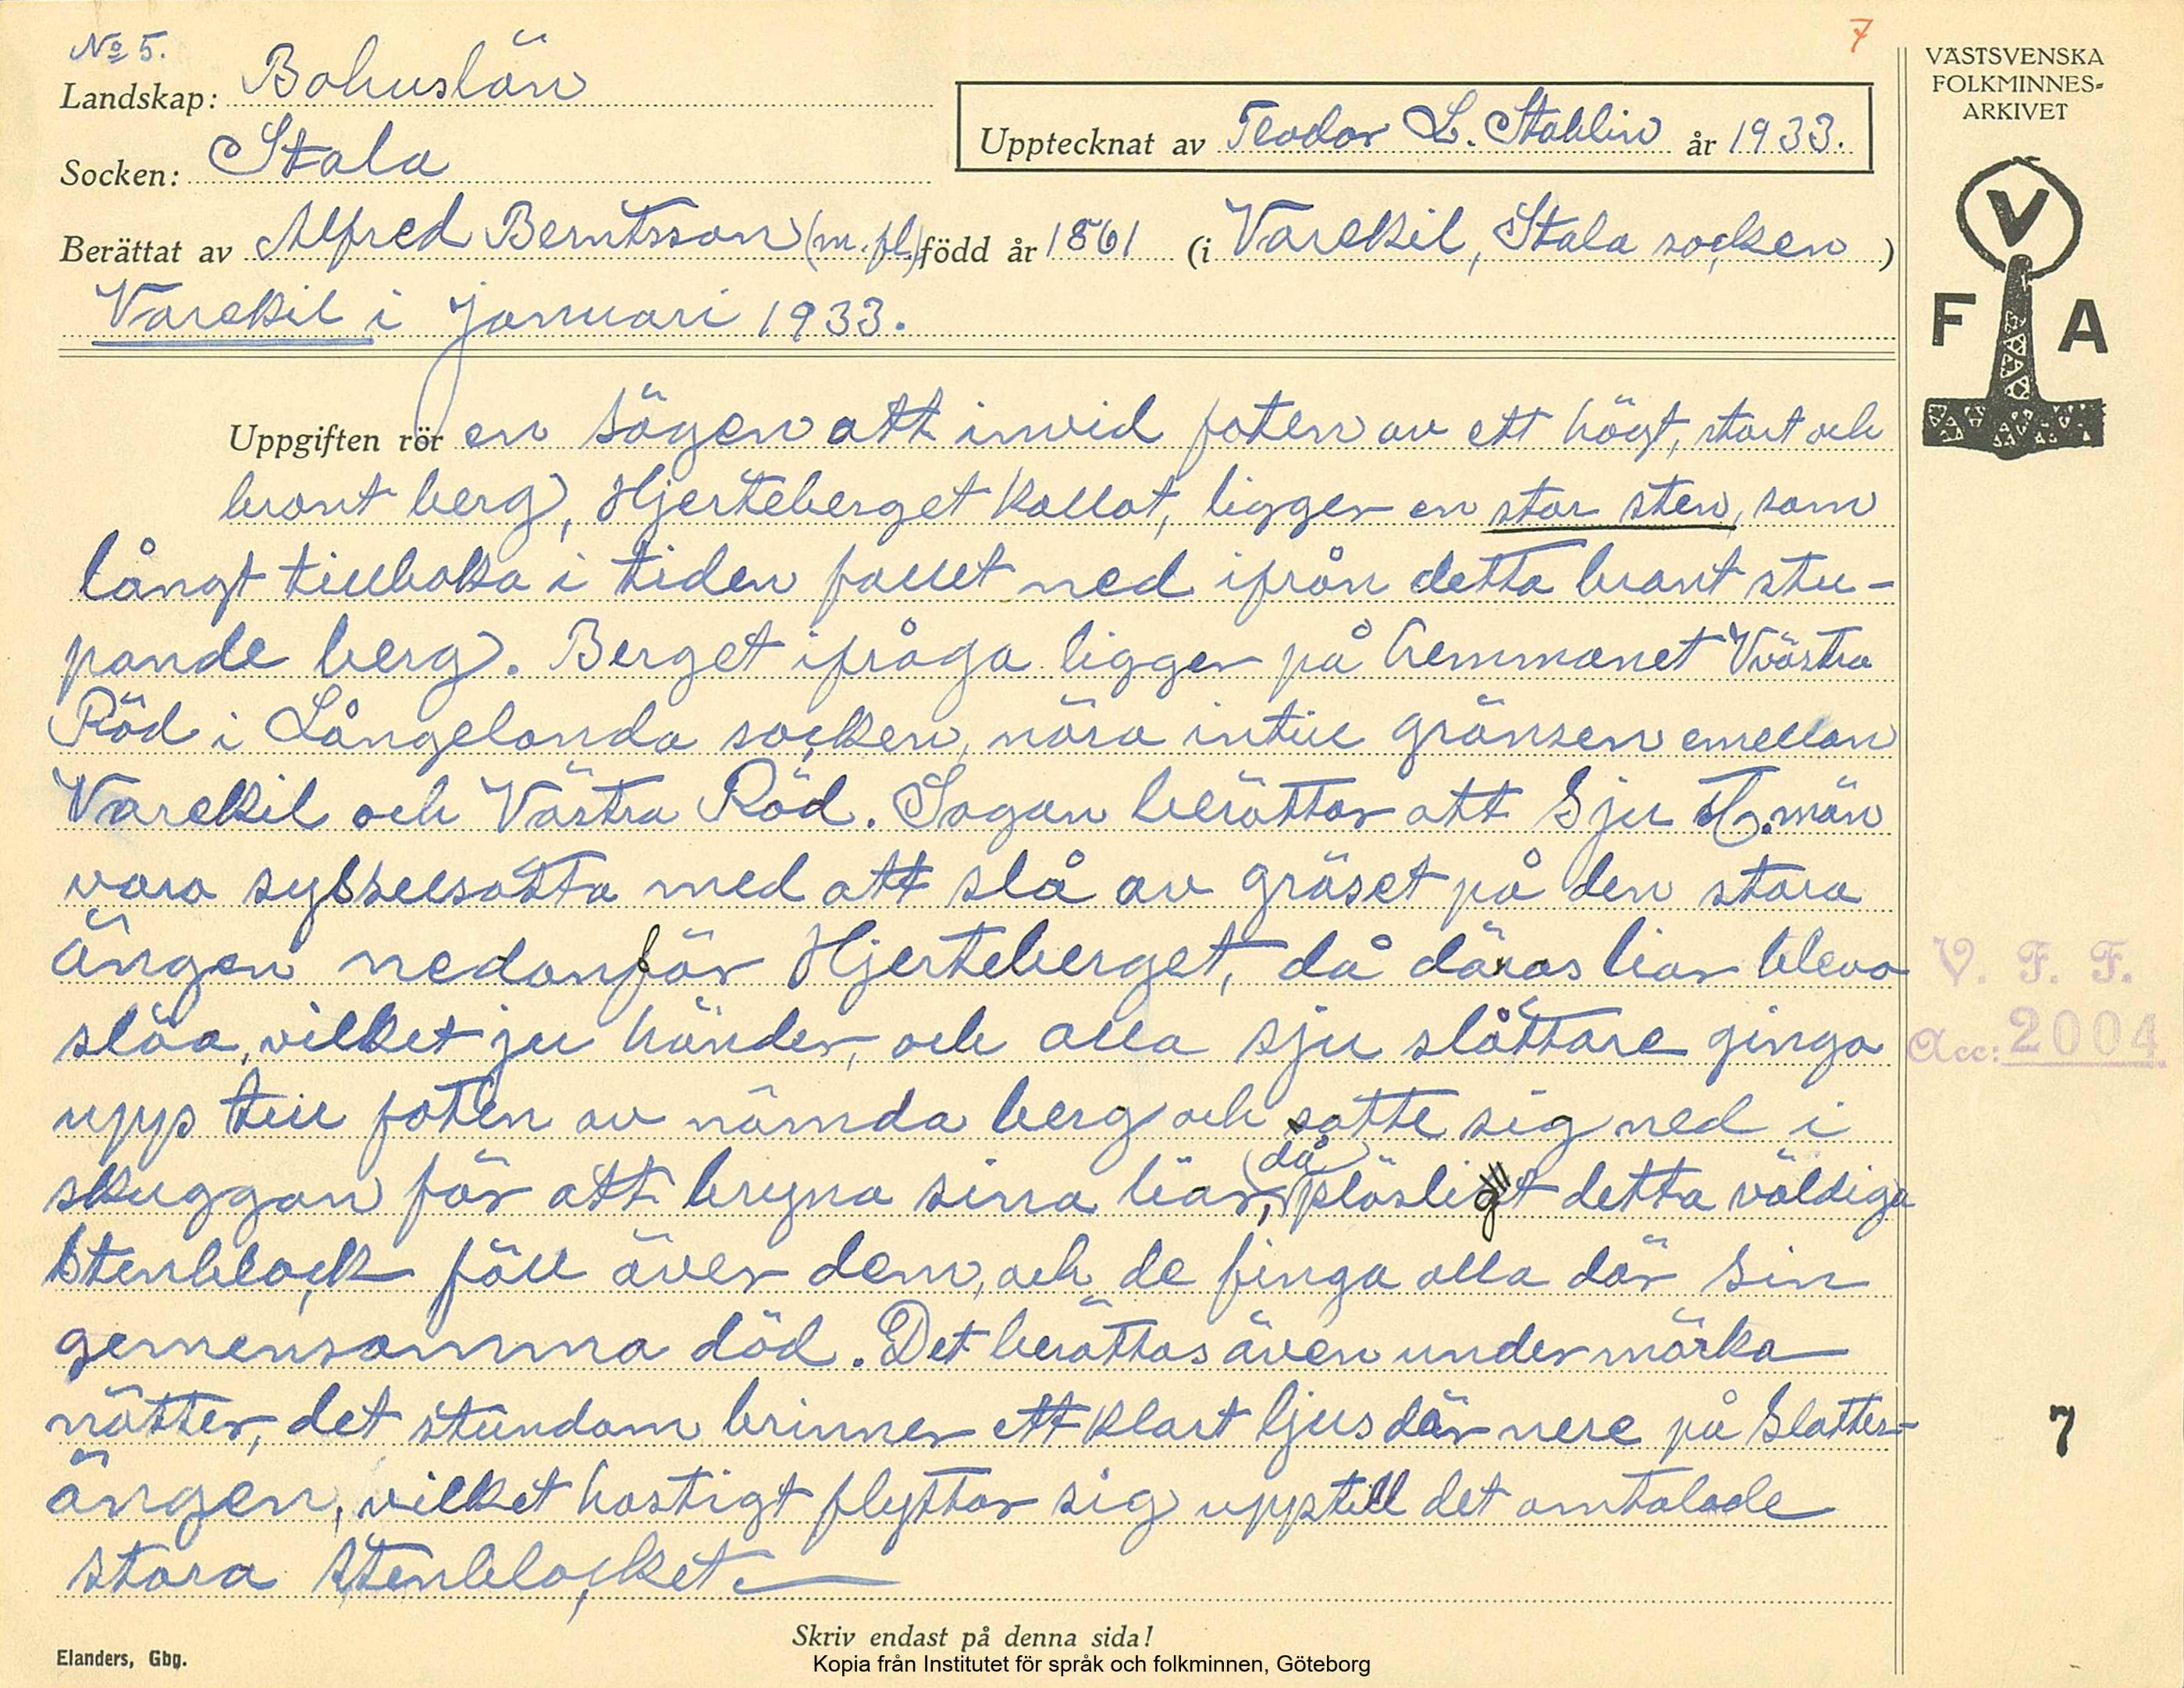 7
No 5.
Landskap: Bohuslän
Socken: Stala
Upptecknat av Teodor L. Stahlin år 1933.
Berättat av Alfred Berntsson (m. fl.) född år 1861 (i Varekil, Stala socken )
Varekil i januari 1933.
Uppgiften rör en sägen att invid foten av ett högt, stort och
brant berg, Hjerteberget kallat, ligger en stor sten, som
långt tillbaka i tiden fallit ned ifrån detta brant stu-
pande berg. Berget ifråga ligger på hemmanet Västra
Röd i Långelanda socken, nära intill gränsen emellan
Varekil och Västra Röd. Sagan berättar att sju St. män
voro sysselsatta med att slå av gräset på den stora
ängen nedanför Hjerteberget, då däras liar blevo
slöa, vilket ju händer, och alla sju slåttare gingo
upp till foten av nämda berg och satte sig ned i
skuggan för att bryna sina liar, då plösligt detta väldiga
stenblock föll över dem, och de finga alla där sin
gemensamma död. Det berättas även under mörka
nätter, det stundom brinner ett klart ljus där nere på slatter-
ängen, vilket hastigt flyttar sig upp till det omtalade
stora stenblocket.
Skriv endast på denna sida!
Elanders, Gbg.
Kopia från Institutet för språk och folkminnen, Göteborg
VÄSTSVENSKA
FOLKMINNES-
ARKIVET
V
F A
V. F. F.
Acc: 2004
7